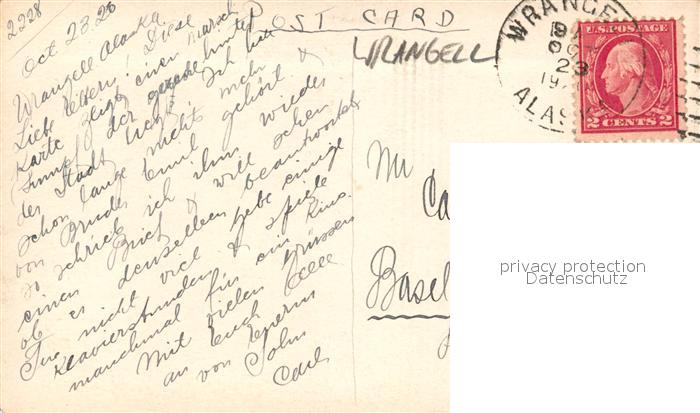 2228
POST CARD
WRANGELL
Oct 23. 20
Wrangell Alaska.
Liebe Eltern! Diese
Karte zeigt einen Marsch
(Sumpf) der gerade hinter
der Stadt liegt. Ich hab
schon lange nichts mehr
von Bruder Emil gehört &
so schrieb ich ihm wieder
einen Brief & will sehen
ob er denselben beantwortet
Tue nicht viel gebe einige
Klavierstunden & spiele
manchmal für ein Kino.
Mit vielen Grüssen
an Euch alle
von Euerm
Sohn
Carl
WRANGE
OCT
23
19
ALAS
U.S. POSTAGE
2 CENTS 2
Mr
Ca
Basel
privacy protection
Datenschutz